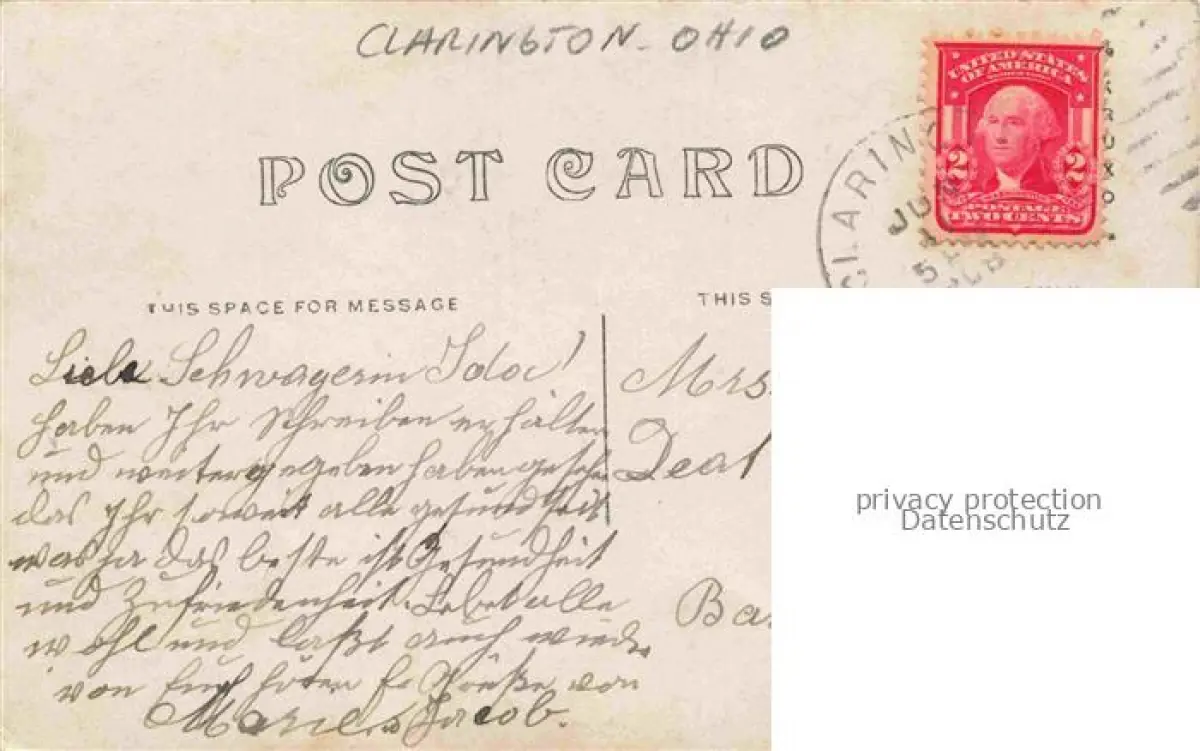 CLARINGTON - OHIO
UNITED STATES
OF AMERICA
2 2
POSTAGE
TWO CENTS
CLARING
JUN
5
POST CARD
THIS SPACE FOR MESSAGE
THIS S
Liebe Schwägerin Ida!
haben Ihr Schreiben erhalten
und weitergegeben haben gesehen
das Ihr soweit alle gesund seit
was ja das beste ist Gesundheit
und Zufriedenheit. Lebet alle
wohl und laßt auch wieder
von Euch hören Grüße von
Marie u Jacob.
Mrs.
Ba
privacy protection
Datenschutz